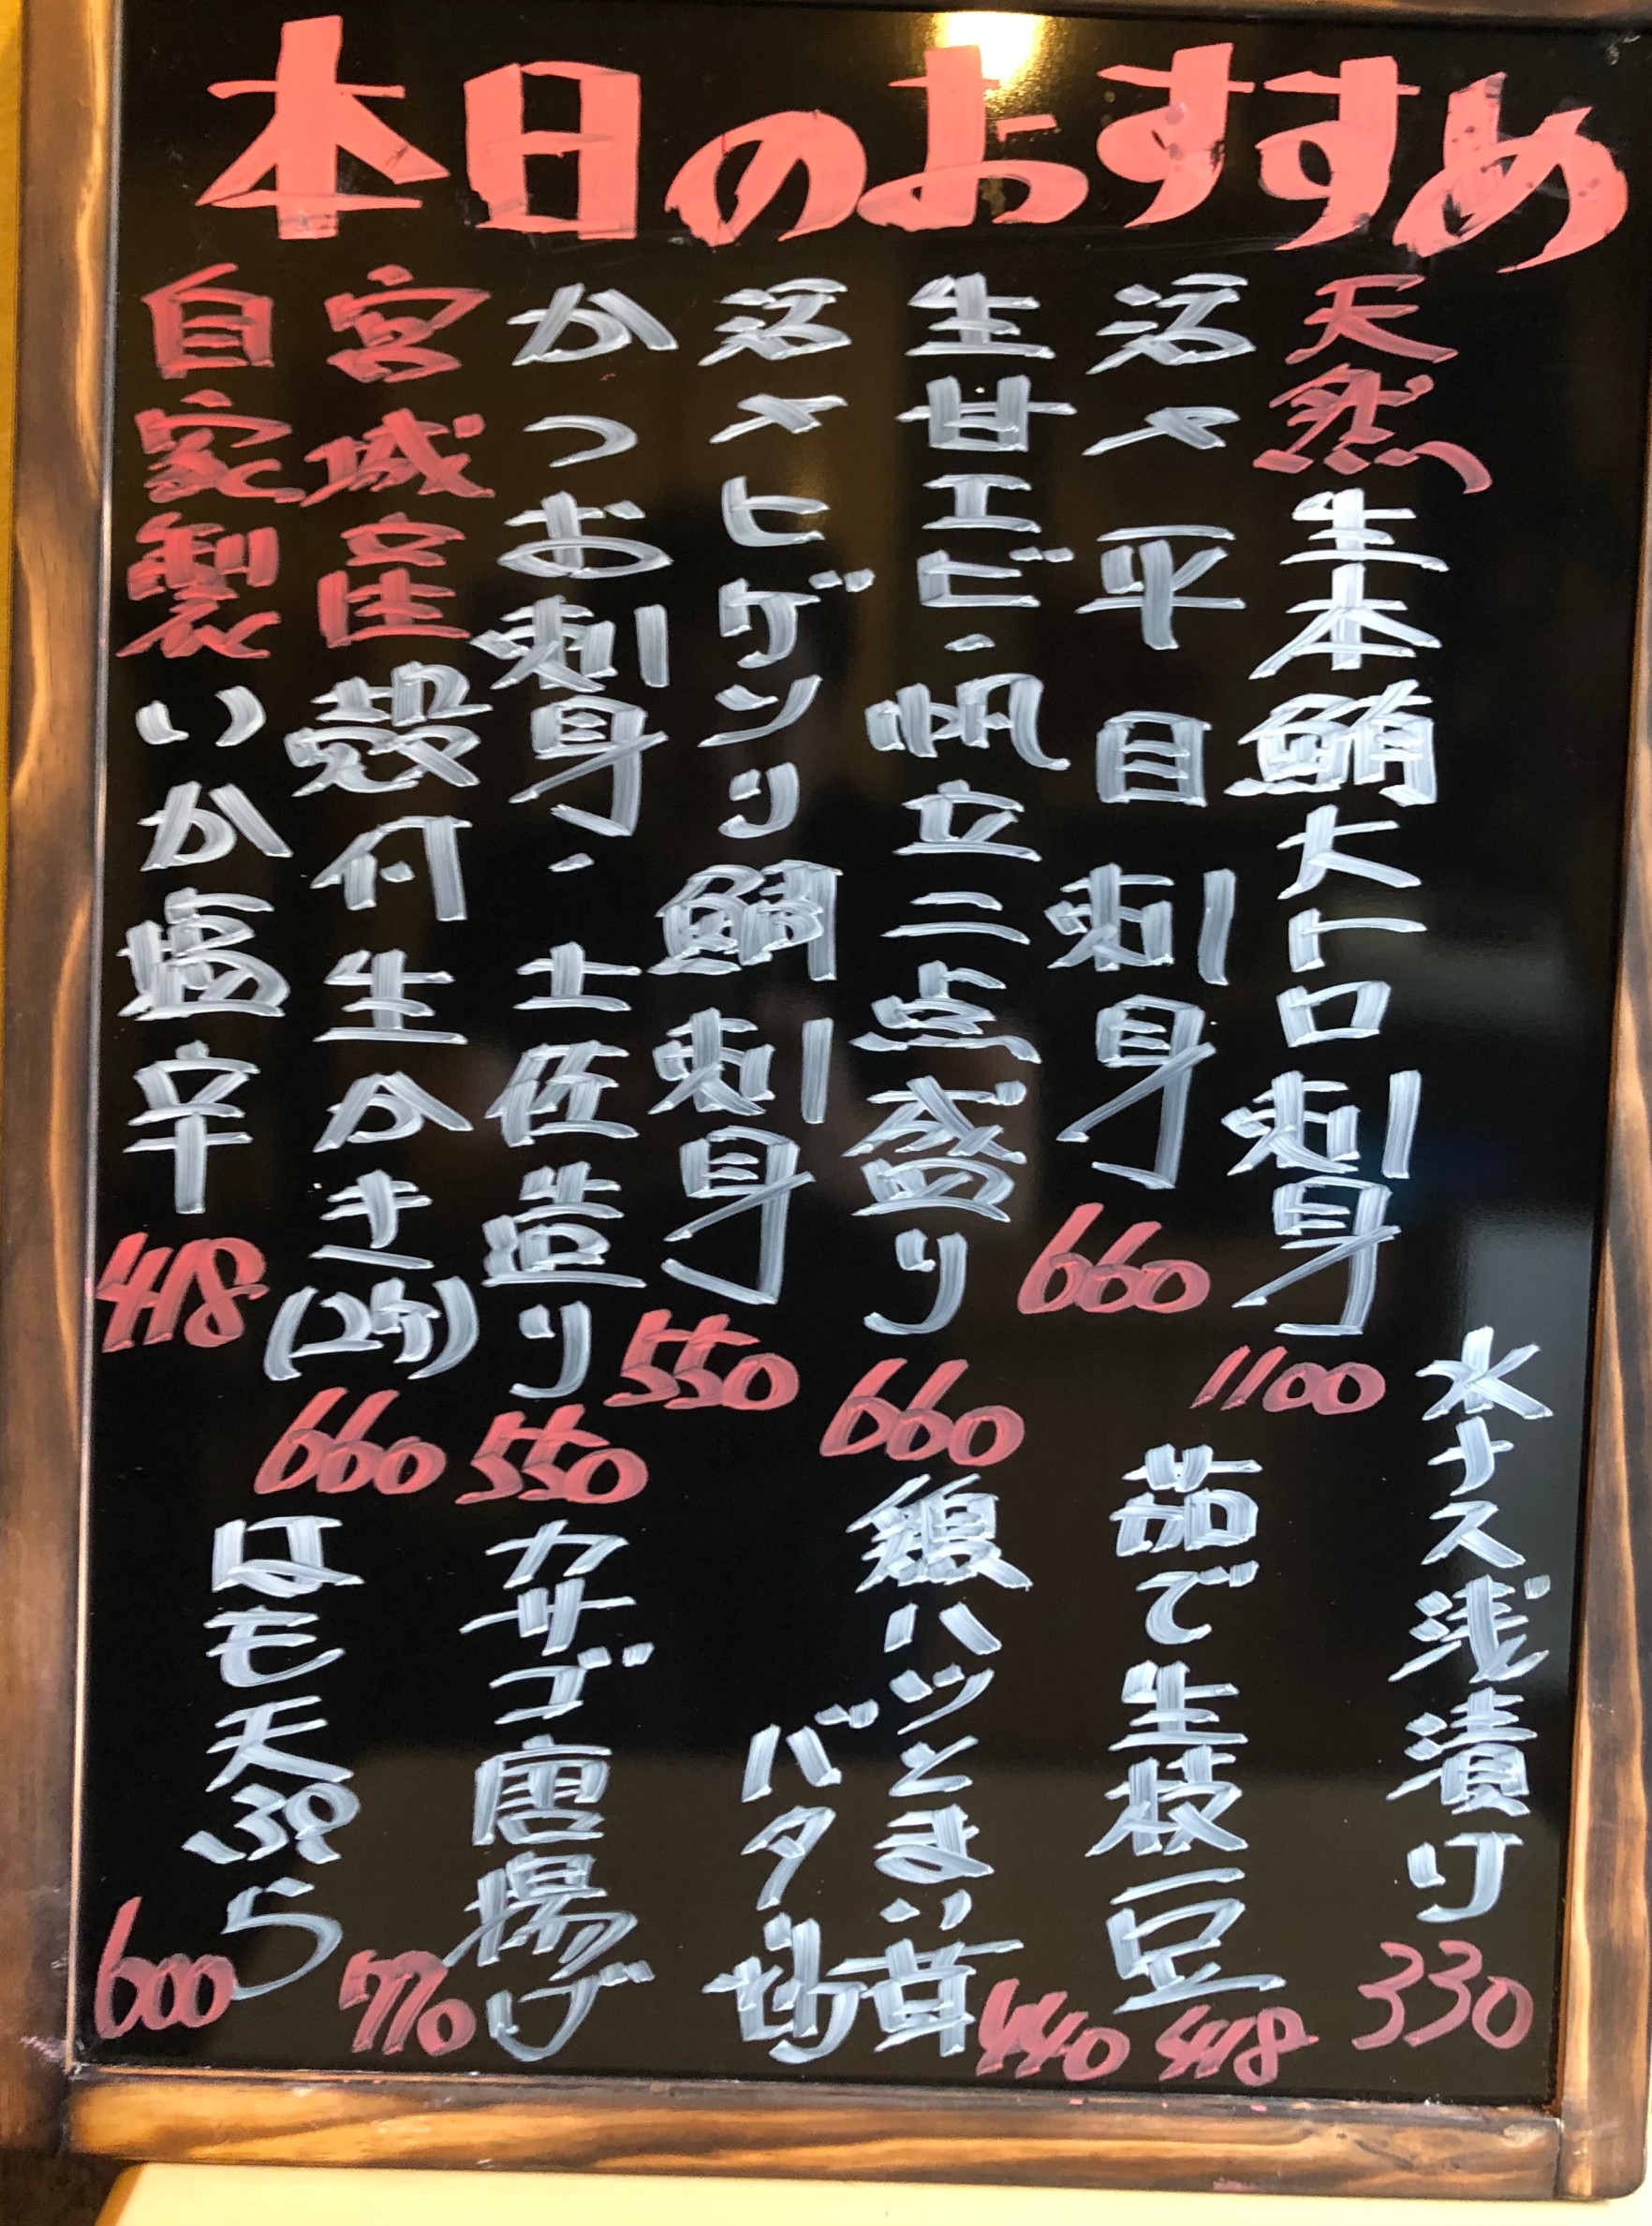 本日のおすすめ
天然生本鮪大トロ刺身
1100
活〆平目刺身
660
生甘エビ・帆立二点盛り
660
活〆ヒゲソリ鯛刺身
550
かつお刺身・土佐造り
550
宮城産殻付生かき(2ケ)
660
自家製いか塩辛
418
水ナス浅漬け
330
茹で生枝豆
418
鶏ハツとまい茸
バター焼
440
カサゴ唐揚げ
770
はも天ぷら
600